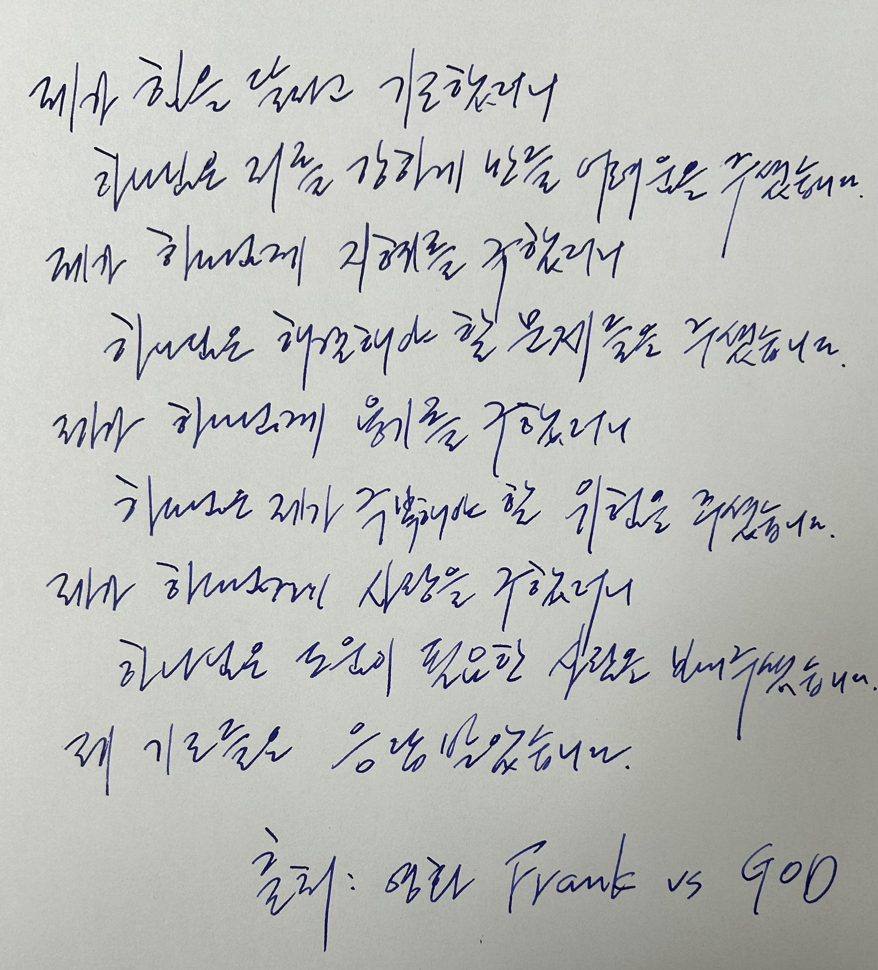 제가 힘을 달라고 기도했더니
하나님은 저를 강하게 만들 어려움을 주셨습니다.
제가 하나님께 지혜를 구했더니
하나님은 해결해야 할 문제들을 주셨습니다.
제가 하나님께 용기를 구했더니
하나님은 제가 극복해야 할 위험을 주셨습니다.
제가 하나님께 사랑을 구했더니
하나님은 도움이 필요한 사람을 보내주셨습니다.
제 기도들은 응답받았습니다.
출처: 영화 Frank vs GOD